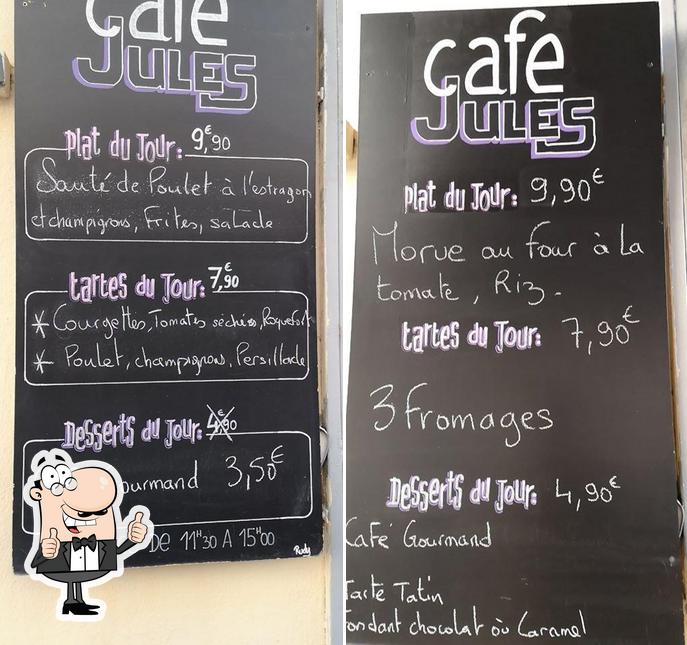 café
JULES
Plat du Jour: 9,90€
Sauté de Poulet à l'estragon
et champignons, Frites, salade
tartes du Jour: 7,90€
* Courgettes, Tomates séchées, Roquefort
* Poulet, champignons, Persillade
Desserts du Jour: 4,90€
ourmand 3,50€
DE 11H30 A 15H00
Rudy
café
JULES
Plat du Jour: 9,90€
Morue au four à la
tomate, Riz.
tartes du Jour: 7,90€
3 fromages
Desserts du Jour: 4,90€
Café Gourmand
Tarte Tatin
fondant chocolat où Caramel